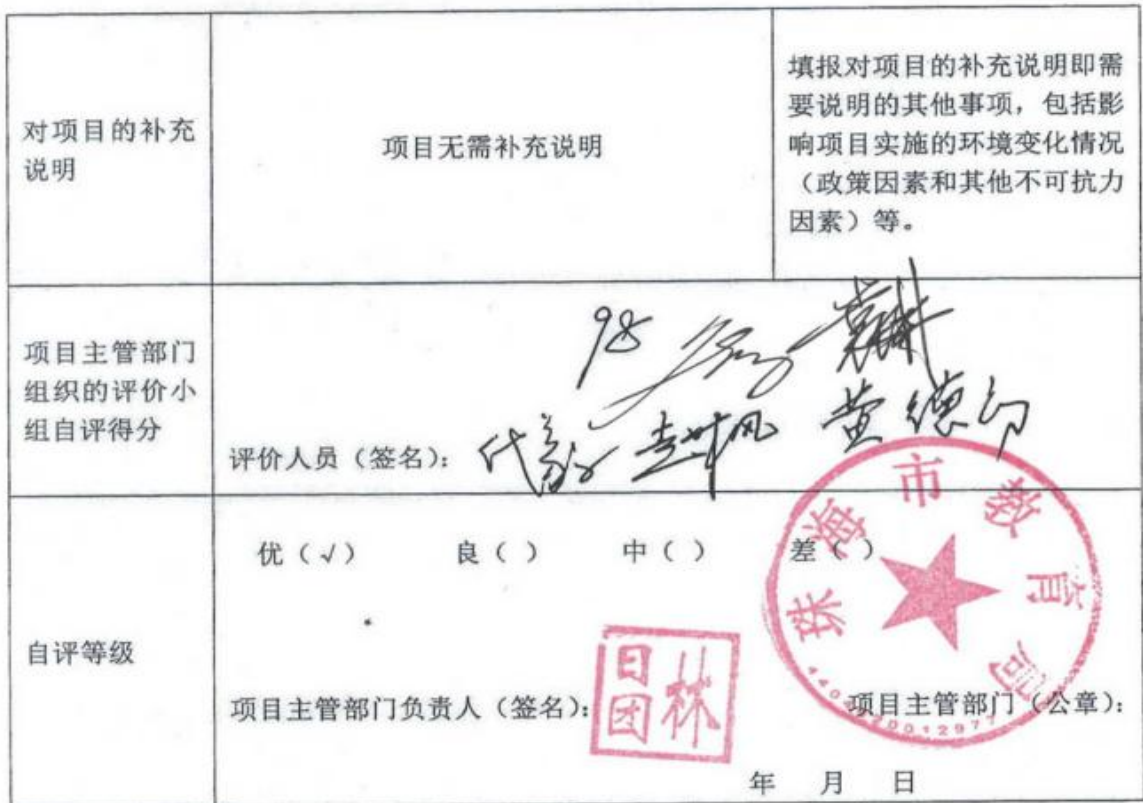 对项目的补充
说明
项目无需补充说明
填报对项目的补充说明即需
要说明的其他事项，包括影
响项目实施的环境变化情况
（政策因素和其他不可抗力
因素）等。
项目主管部门
组织的评价小
组自评得分
98
评价人员（签名）：
黄德
自评等级
优（√）
良（ ）
中（ ）
差（ ）
珠海市教育局
林日团
项目主管部门负责人（签名）：
项目主管部门（公章）：
年 月 日